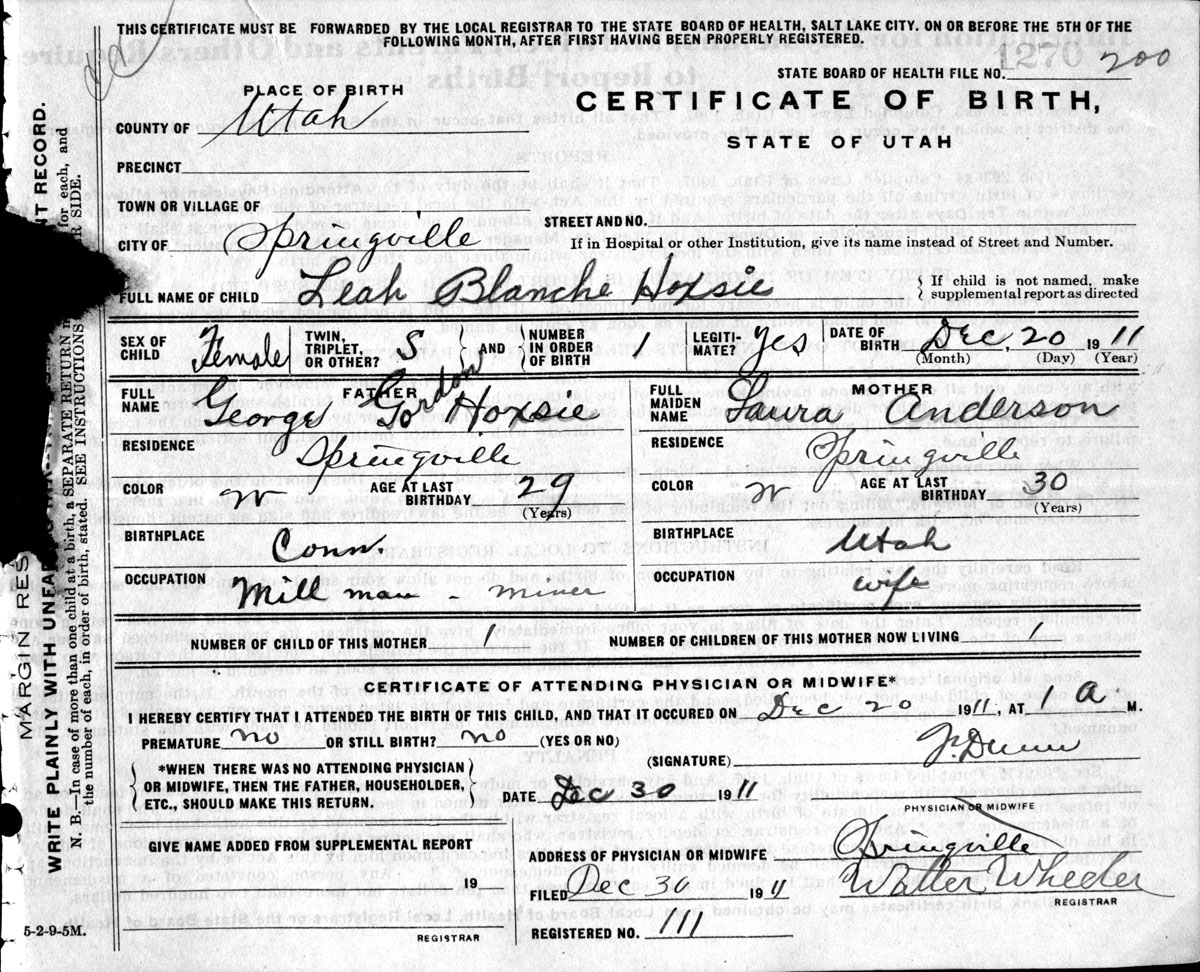 THIS CERTIFICATE MUST BE FORWARDED BY THE LOCAL REGISTRAR TO THE STATE BOARD OF HEALTH, SALT LAKE CITY. ON OR BEFORE THE 5TH OF THE
FOLLOWING MONTH, AFTER FIRST HAVING BEEN PROPERLY REGISTERED.
1270 200
STATE BOARD OF HEALTH FILE NO.
PLACE OF BIRTH
CERTIFICATE OF BIRTH,
STATE OF UTAH
COUNTY OF Utah
PRECINCT
TOWN OR VILLAGE OF
STREET AND NO.
CITY OF Springville
If in Hospital or other Institution, give its name instead of Street and Number.
FULL NAME OF CHILD Leah Blanche Hoxsie
If child is not named, make
supplemental report as directed
SEX OF CHILD Female
TWIN, TRIPLET, OR OTHER? S
AND
NUMBER IN ORDER OF BIRTH 1
LEGITI-MATE? Yes
DATE OF BIRTH Dec, 20 1911
(Month) (Day) (Year)
FATHER
FULL NAME George Gordon Hoxsie
MOTHER
FULL MAIDEN NAME Laura Anderson
RESIDENCE Springville
RESIDENCE Springville
COLOR W AGE AT LAST BIRTHDAY 29
(Years)
COLOR W AGE AT LAST BIRTHDAY 30
(Years)
BIRTHPLACE Conn.
BIRTHPLACE Utah
OCCUPATION Mill man - miner
OCCUPATION wife
NUMBER OF CHILD OF THIS MOTHER 1
NUMBER OF CHILDREN OF THIS MOTHER NOW LIVING 1
CERTIFICATE OF ATTENDING PHYSICIAN OR MIDWIFE*
I HEREBY CERTIFY THAT I ATTENDED THE BIRTH OF THIS CHILD, AND THAT IT OCCURED ON Dec 20 1911, AT 1 a M.
PREMATURE no OR STILL BIRTH? no (YES OR NO)
(SIGNATURE) Dunn
*WHEN THERE WAS NO ATTENDING PHYSICIAN
OR MIDWIFE, THEN THE FATHER, HOUSEHOLDER,
ETC., SHOULD MAKE THIS RETURN.
DATE Dec 30 1911
PHYSICIAN OR MIDWIFE
GIVE NAME ADDED FROM SUPPLEMENTAL REPORT
19
REGISTRAR
ADDRESS OF PHYSICIAN OR MIDWIFE Springville
FILED Dec 30 1911 Walter Wheeler
REGISTRAR
REGISTERED NO. 111
5-2-9-5M.
MARGIN RES
WRITE PLAINLY WITH UNFA
T RECORD.
N. B.—In case of more than one child at a birth, a SEPARATE RETURN m
for each, and
the number of each, in order of birth, stated. SEE INSTRUCTIONS
R SIDE.